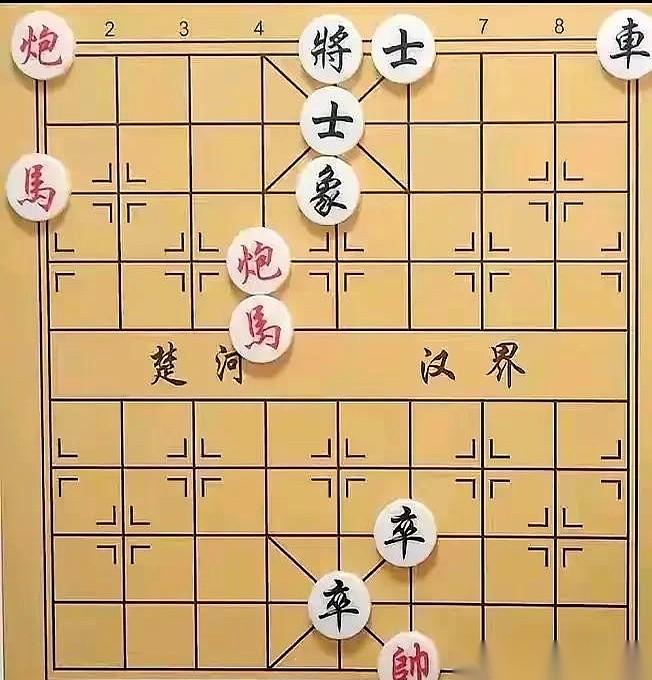 2 3 4 7 8
炮 將 士 車
士
馬 象
炮
馬
楚 河 汉 界
卒
卒
帥